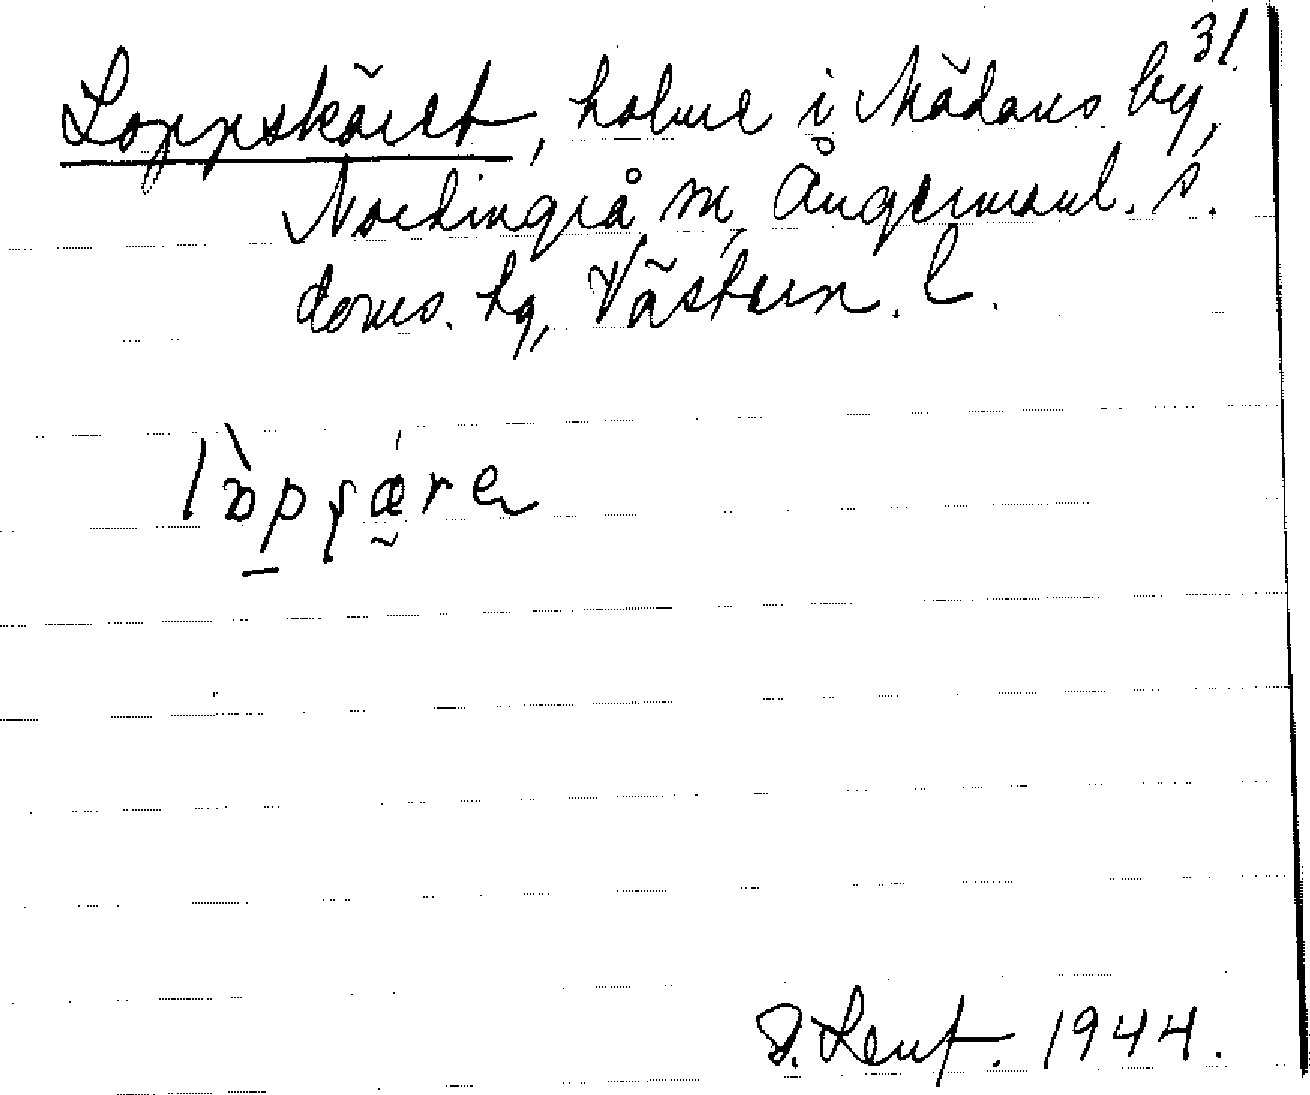 31.
Loppskäret, holme i Mädans by,
Nordingrå sn, Ångermanl. s.
doms. hg, Västern. l.
lòpʂǽ̰re
Lenf. 1944.